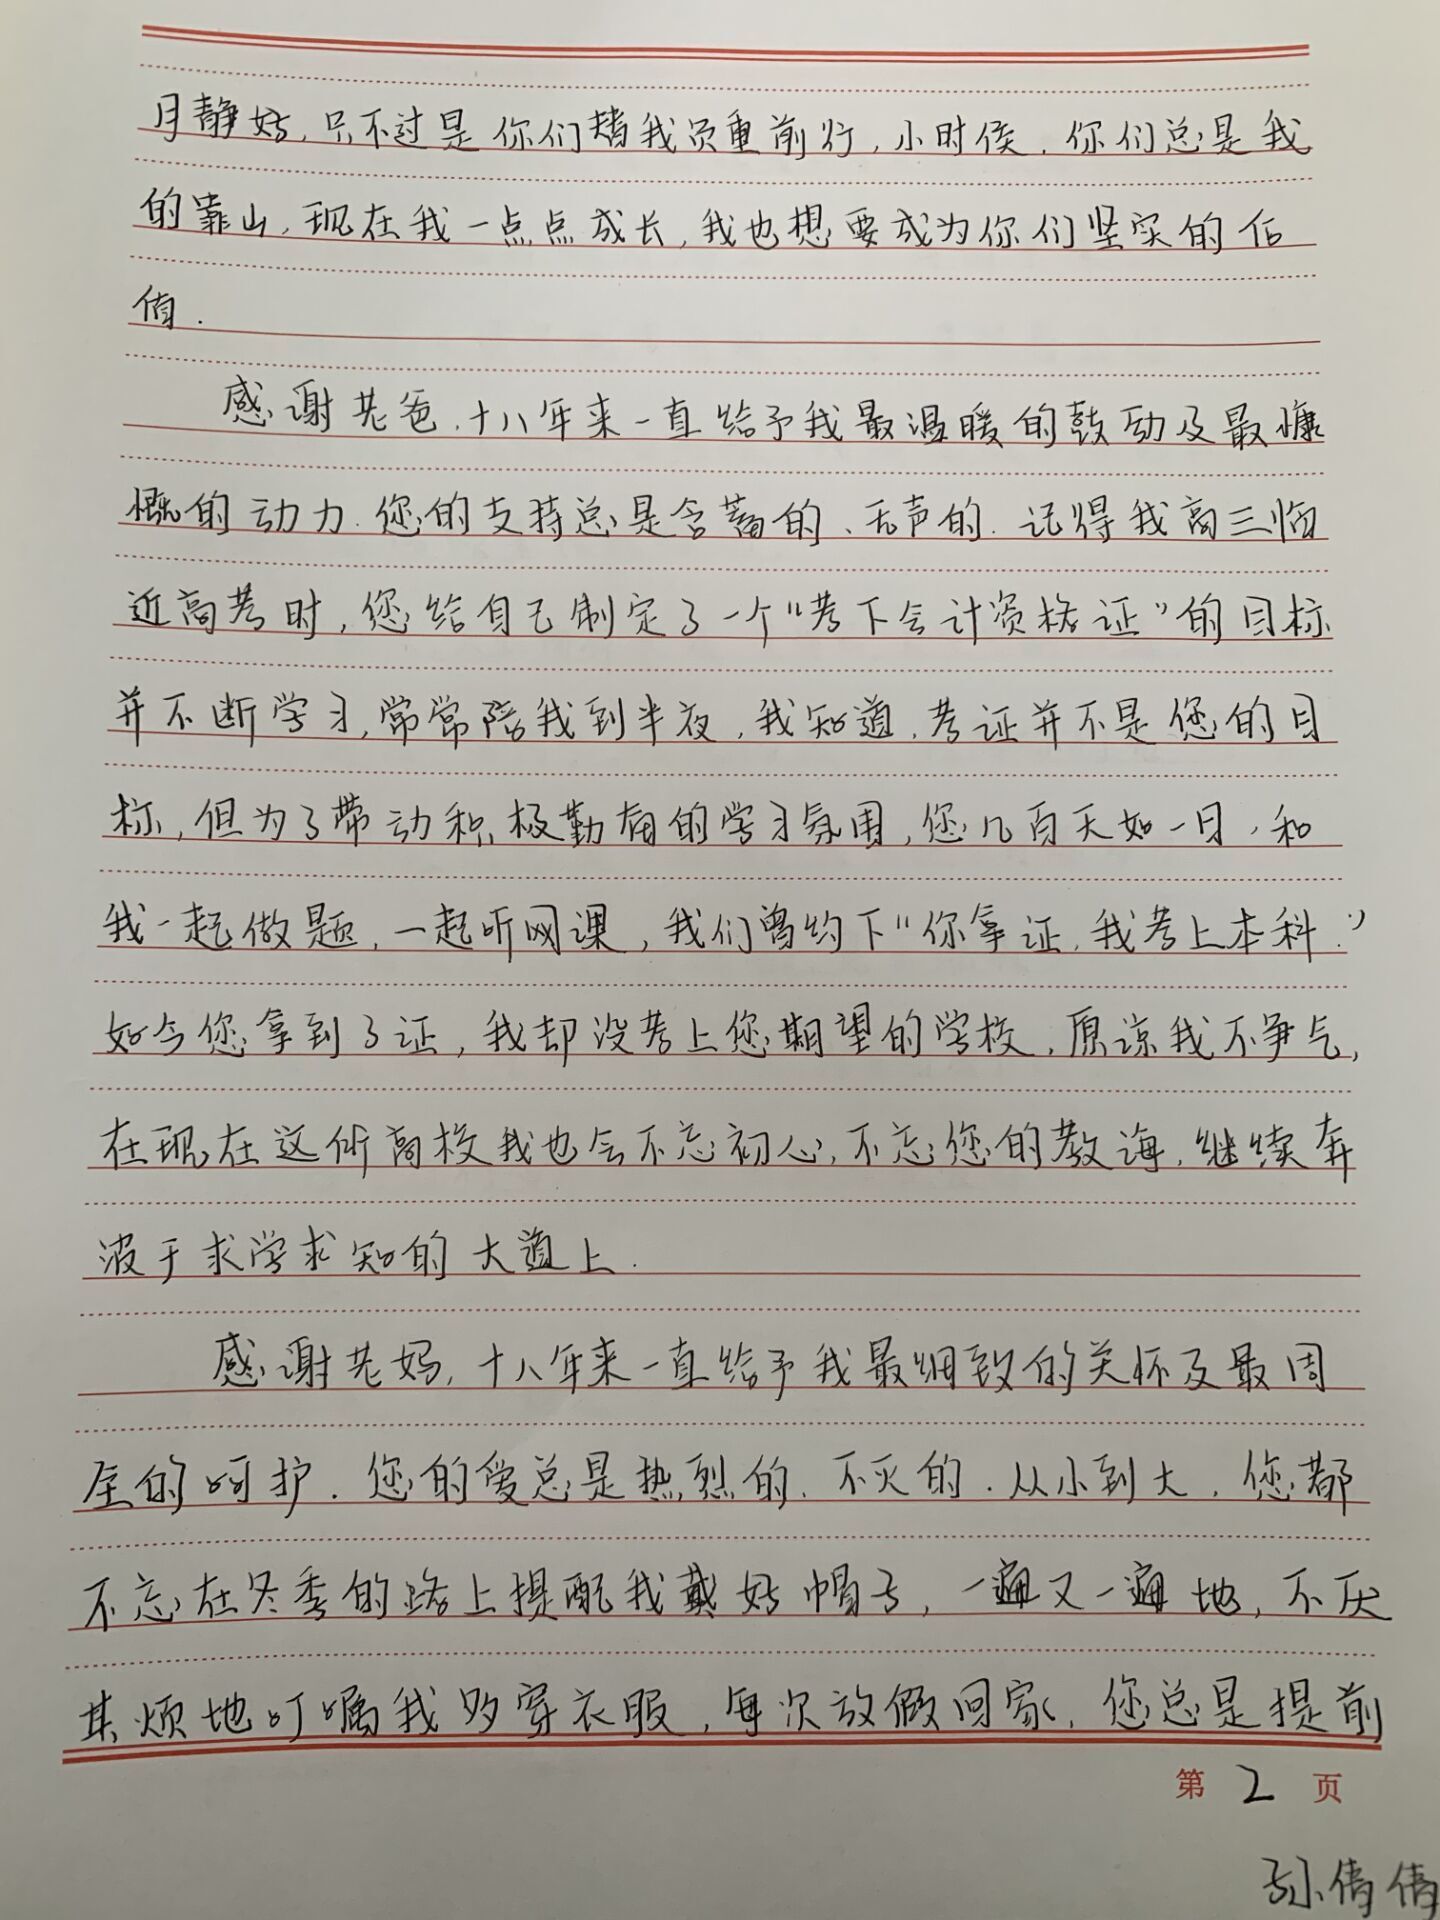 月静好，只不过是你们替我负重前行，小时侯，你们总是我
的靠山，现在我一点点成长，我也想要成为你们坚实的后
盾．
感谢老爸，十八年来一直给予我最温暖的鼓动及最慷
慨的动力．您的支持总是含蓄的、无声的．记得我高三临
近高考时，您给自己制定了一个“考下会计资格证”的目标
并不断学习，常常陪我到半夜，我知道，考证并不是您的目
标，但为了带动积极勤奋的学习氛围，您几百天如一日，和
我一起做题，一起听网课，我们曾约下“你拿证，我考上本科．”
如今您拿到了证，我却没考上您期望的学校，原谅我不争气，
在现在这所高校我也会不忘初心，不忘您的教诲，继续奔
波于求学求知的大道上．
感谢老妈，十八年来一直给予我最细致的关怀及最周
全的呵护．您的爱总是热烈的、不灭的．从小到大，您都
不忘在冬季的路上提醒我戴好帽子，一遍又一遍地，不厌
其烦地叮嘱我多穿衣服，每次放假回家，您总是提前
第 2 页
孙倩倩